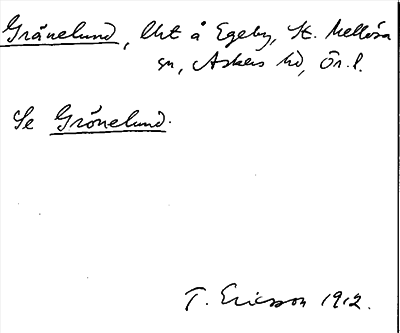 Gränelund, lht å Egeby, St. Mellösa
sn, Askers hd, Ör. l.
Se Grönelund.
T. Ericsson 1912.